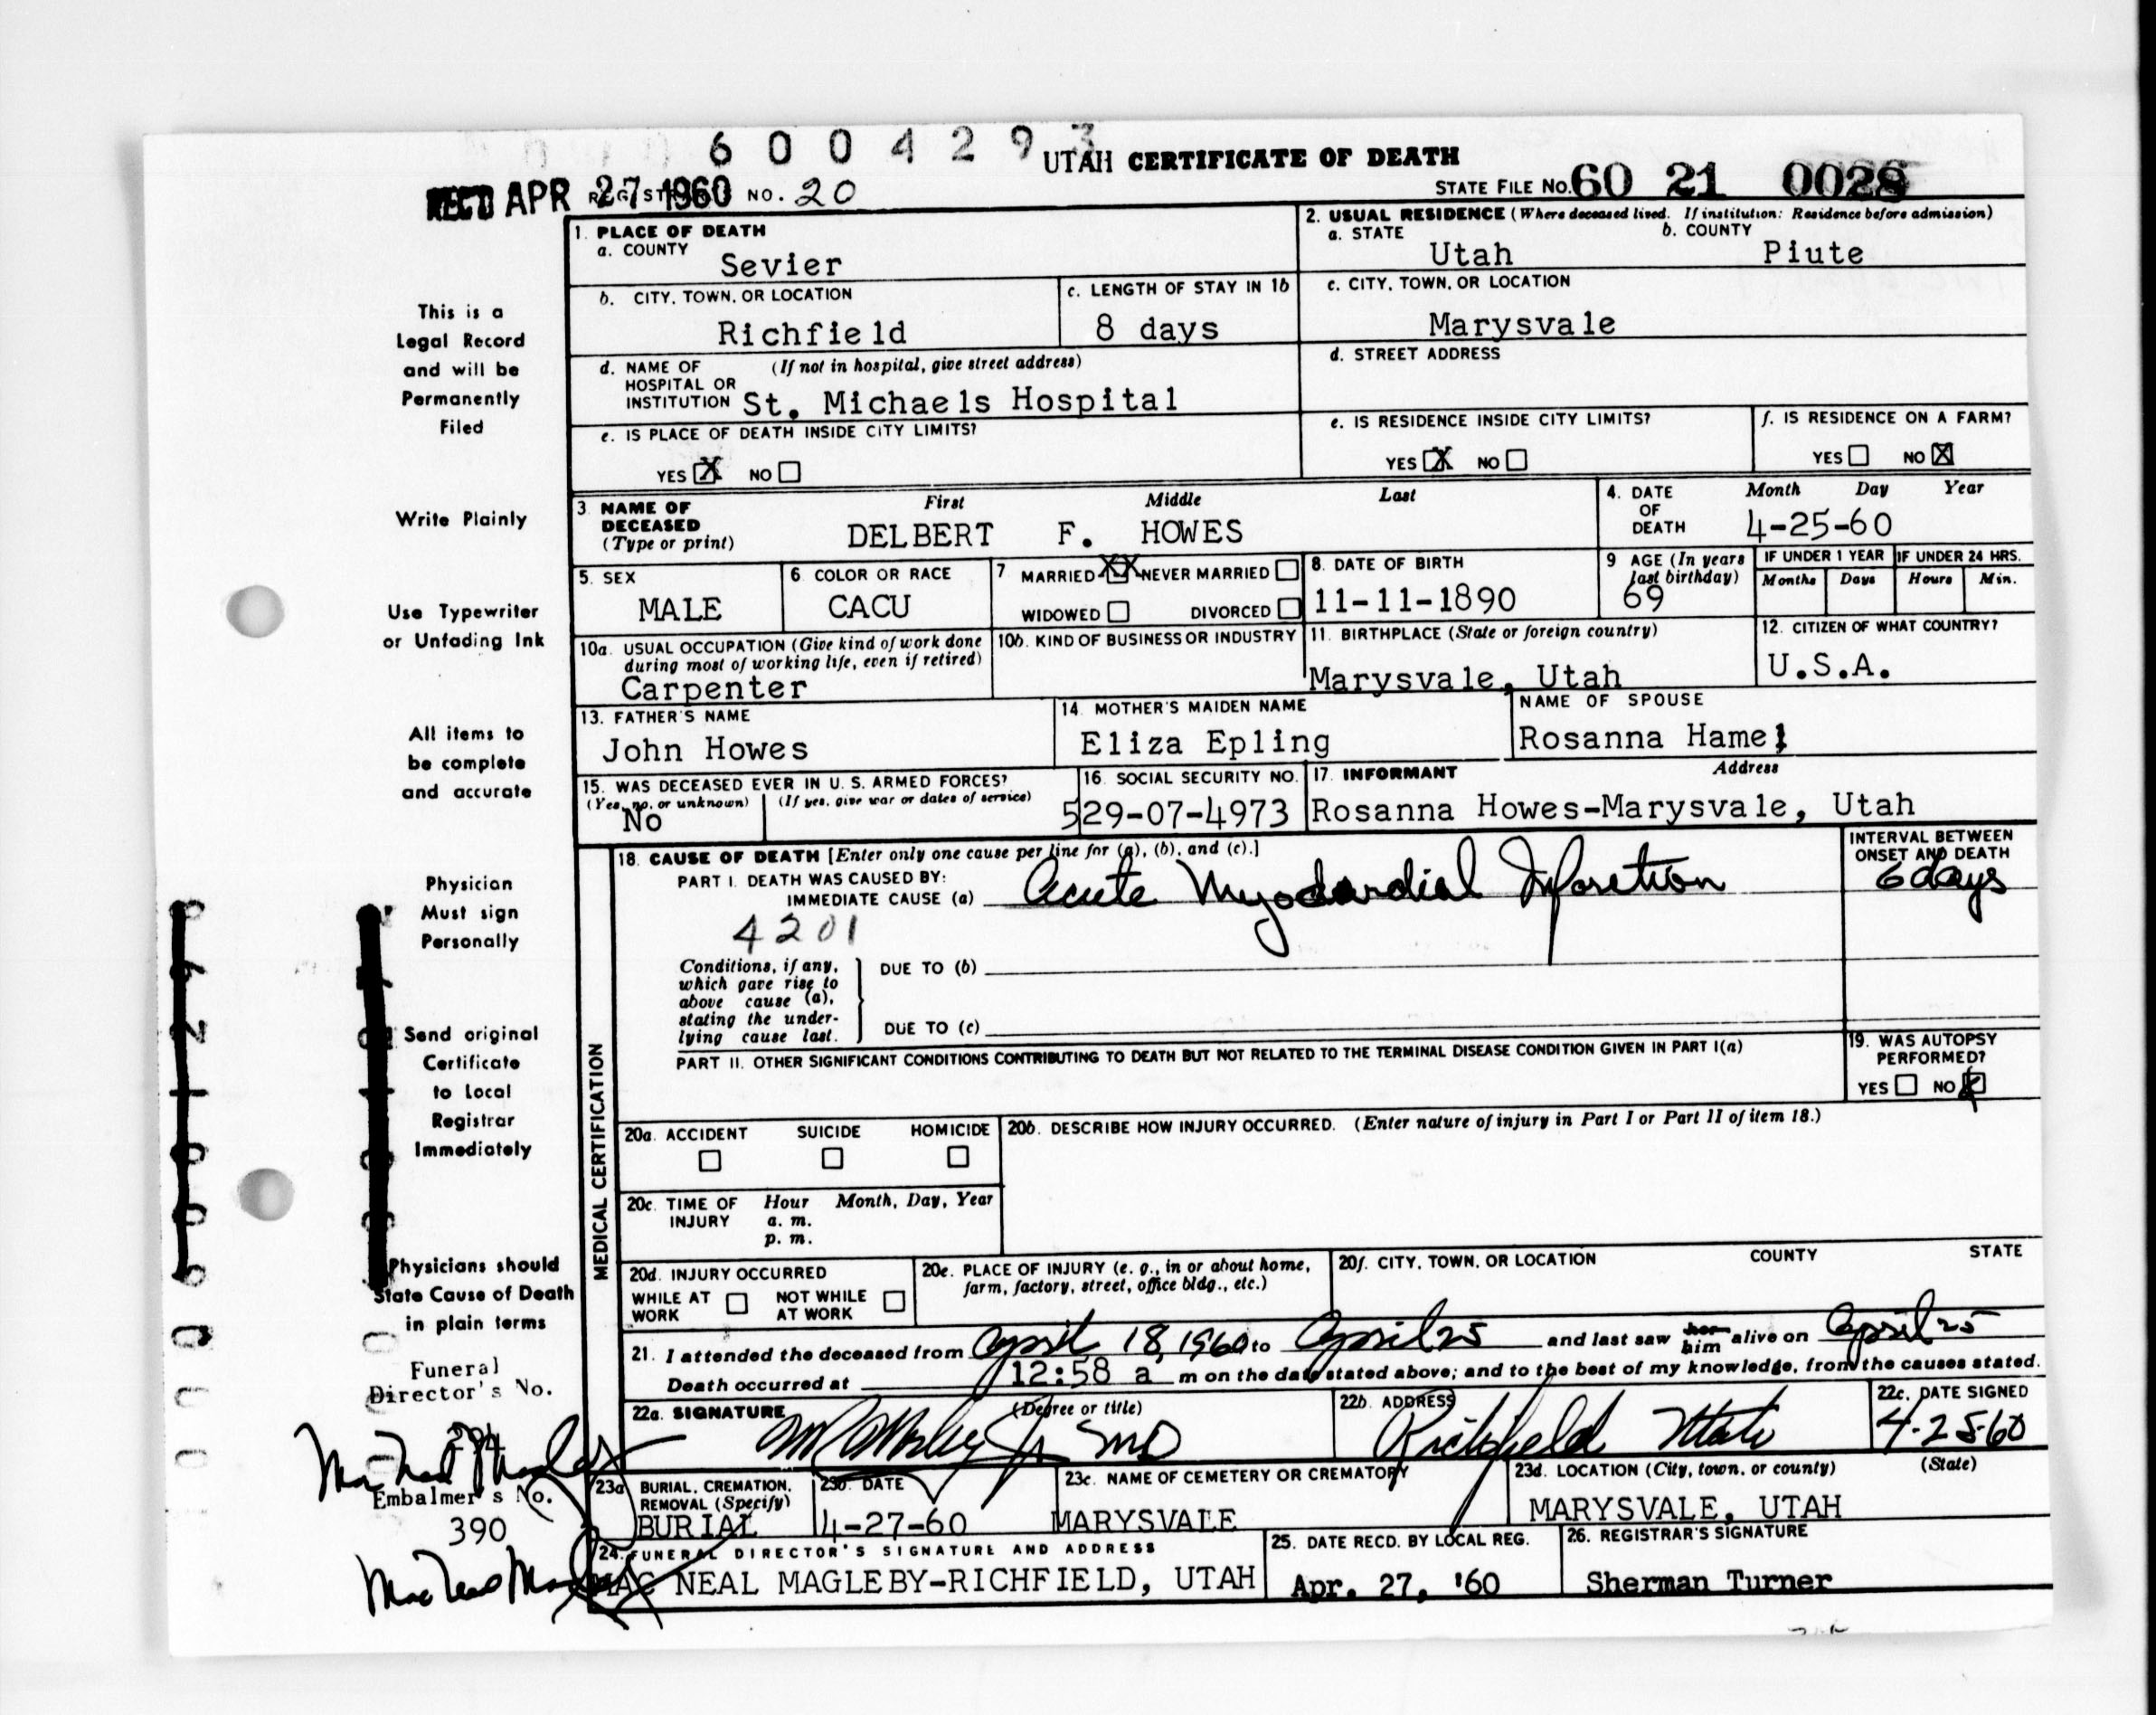 6 0 0 4 2 9 3
UTAH CERTIFICATE OF DEATH
REC'D APR 27 1960 REGISTRAR'S NO. 20
STATE FILE NO. 60 21 0028
1. PLACE OF DEATH
a. COUNTY
Sevier
2. USUAL RESIDENCE (Where deceased lived. If institution: Residence before admission)
a. STATE b. COUNTY
Utah Piute
b. CITY, TOWN, OR LOCATION
Richfield
c. LENGTH OF STAY IN 1b
8 days
c. CITY, TOWN, OR LOCATION
Marysvale
d. NAME OF (If not in hospital, give street address)
HOSPITAL OR
INSTITUTION St. Michaels Hospital
d. STREET ADDRESS
e. IS PLACE OF DEATH INSIDE CITY LIMITS?
YES X NO
e. IS RESIDENCE INSIDE CITY LIMITS?
YES X NO
f. IS RESIDENCE ON A FARM?
YES NO X
3. NAME OF DECEASED
(Type or print)
First Middle Last
DELBERT F. HOWES
4. DATE OF DEATH
Month Day Year
4-25-60
5. SEX
MALE
6. COLOR OR RACE
CACU
7. MARRIED XX NEVER MARRIED
WIDOWED DIVORCED
8. DATE OF BIRTH
11-11-1890
9. AGE (In years
last birthday)
69
IF UNDER 1 YEAR
Months Days
IF UNDER 24 HRS.
Hours Min.
10a. USUAL OCCUPATION (Give kind of work done
during most of working life, even if retired)
Carpenter
10b. KIND OF BUSINESS OR INDUSTRY
11. BIRTHPLACE (State or foreign country)
Marysvale, Utah
12. CITIZEN OF WHAT COUNTRY?
U.S.A.
13. FATHER'S NAME
John Howes
14. MOTHER'S MAIDEN NAME
Eliza Epling
NAME OF SPOUSE
Rosanna Hamel
15. WAS DECEASED EVER IN U. S. ARMED FORCES?
(Yes, no, or unknown) (If yes, give war or dates of service)
No
16. SOCIAL SECURITY NO.
529-07-4973
17. INFORMANT Address
Rosanna Howes-Marysvale, Utah
MEDICAL CERTIFICATION
18. CAUSE OF DEATH [Enter only one cause per line for (a), (b), and (c).]
PART I. DEATH WAS CAUSED BY:
IMMEDIATE CAUSE (a) Acute Myocardial Infarction
INTERVAL BETWEEN
ONSET AND DEATH
6 days
4201
Conditions, if any,
which gave rise to
above cause (a),
stating the under-
lying cause last.
DUE TO (b)
DUE TO (c)
PART II. OTHER SIGNIFICANT CONDITIONS CONTRIBUTING TO DEATH BUT NOT RELATED TO THE TERMINAL DISEASE CONDITION GIVEN IN PART I(a)
19. WAS AUTOPSY
PERFORMED?
YES NO X
20a. ACCIDENT SUICIDE HOMICIDE
20b. DESCRIBE HOW INJURY OCCURRED. (Enter nature of injury in Part I or Part II of item 18.)
20c. TIME OF INJURY
Hour Month, Day, Year
a. m.
p. m.
20d. INJURY OCCURRED
WHILE AT WORK NOT WHILE AT WORK
20e. PLACE OF INJURY (e. g., in or about home,
farm, factory, street, office bldg., etc.)
20f. CITY, TOWN, OR LOCATION COUNTY STATE
21. I attended the deceased from April 18, 1960 to April 25 and last saw her him alive on April 25
Death occurred at 12:58 a m on the date stated above; and to the best of my knowledge, from the causes stated.
22a. SIGNATURE (Degree or title)
Jr MD
22b. ADDRESS
Richfield Utah
22c. DATE SIGNED
4-25-60
23a. BURIAL, CREMATION,
REMOVAL (Specify)
BURIAL
23b. DATE
4-27-60
23c. NAME OF CEMETERY OR CREMATORY
MARYSVALE
23d. LOCATION (City, town, or county) (State)
MARYSVALE, UTAH
24. FUNERAL DIRECTOR'S SIGNATURE AND ADDRESS
MAC NEAL MAGLEBY-RICHFIELD, UTAH
25. DATE RECD. BY LOCAL REG.
Apr. 27, '60
26. REGISTRAR'S SIGNATURE
Sherman Turner
This is a
Legal Record
and will be
Permanently
Filed
Write Plainly
Use Typewriter
or Unfading Ink
All items to
be complete
and accurate
Physician
Must sign
Personally
Send original
Certificate
to Local
Registrar
Immediately
Physicians should
State Cause of Death
in plain terms
Funeral
Director's No.
Embalmer's No.
390